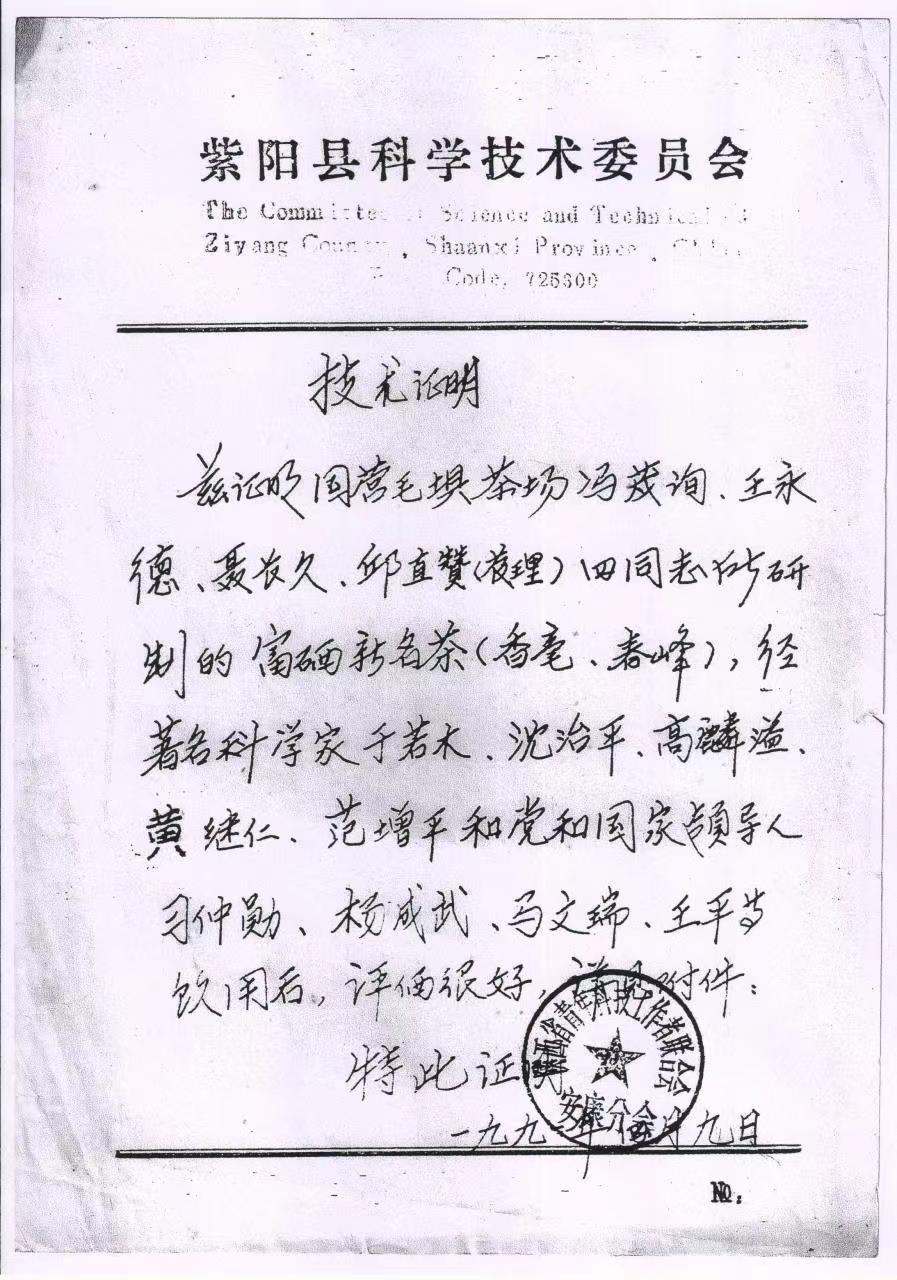 紫阳县科学技术委员会
The Committee Science and Technical
Ziyang County, Shaanxi Province,
Code, 725300
技术证明
兹证明国营毛坝茶场冯茂询、王永
德、聂长久、邱直赞(整理)四同志所研
制的富硒新名茶(香毫、春峰),经
著名科学家于若木、沈治平、高麟溢、
黄继仁、范增平和党和国家领导人
习仲勋、杨成武、马文瑞、王平等
饮用后,评价很好,详见附件:
特此证明
一九九 年 月九日
陕西省青年科技工作者联合会
安康分会
№: